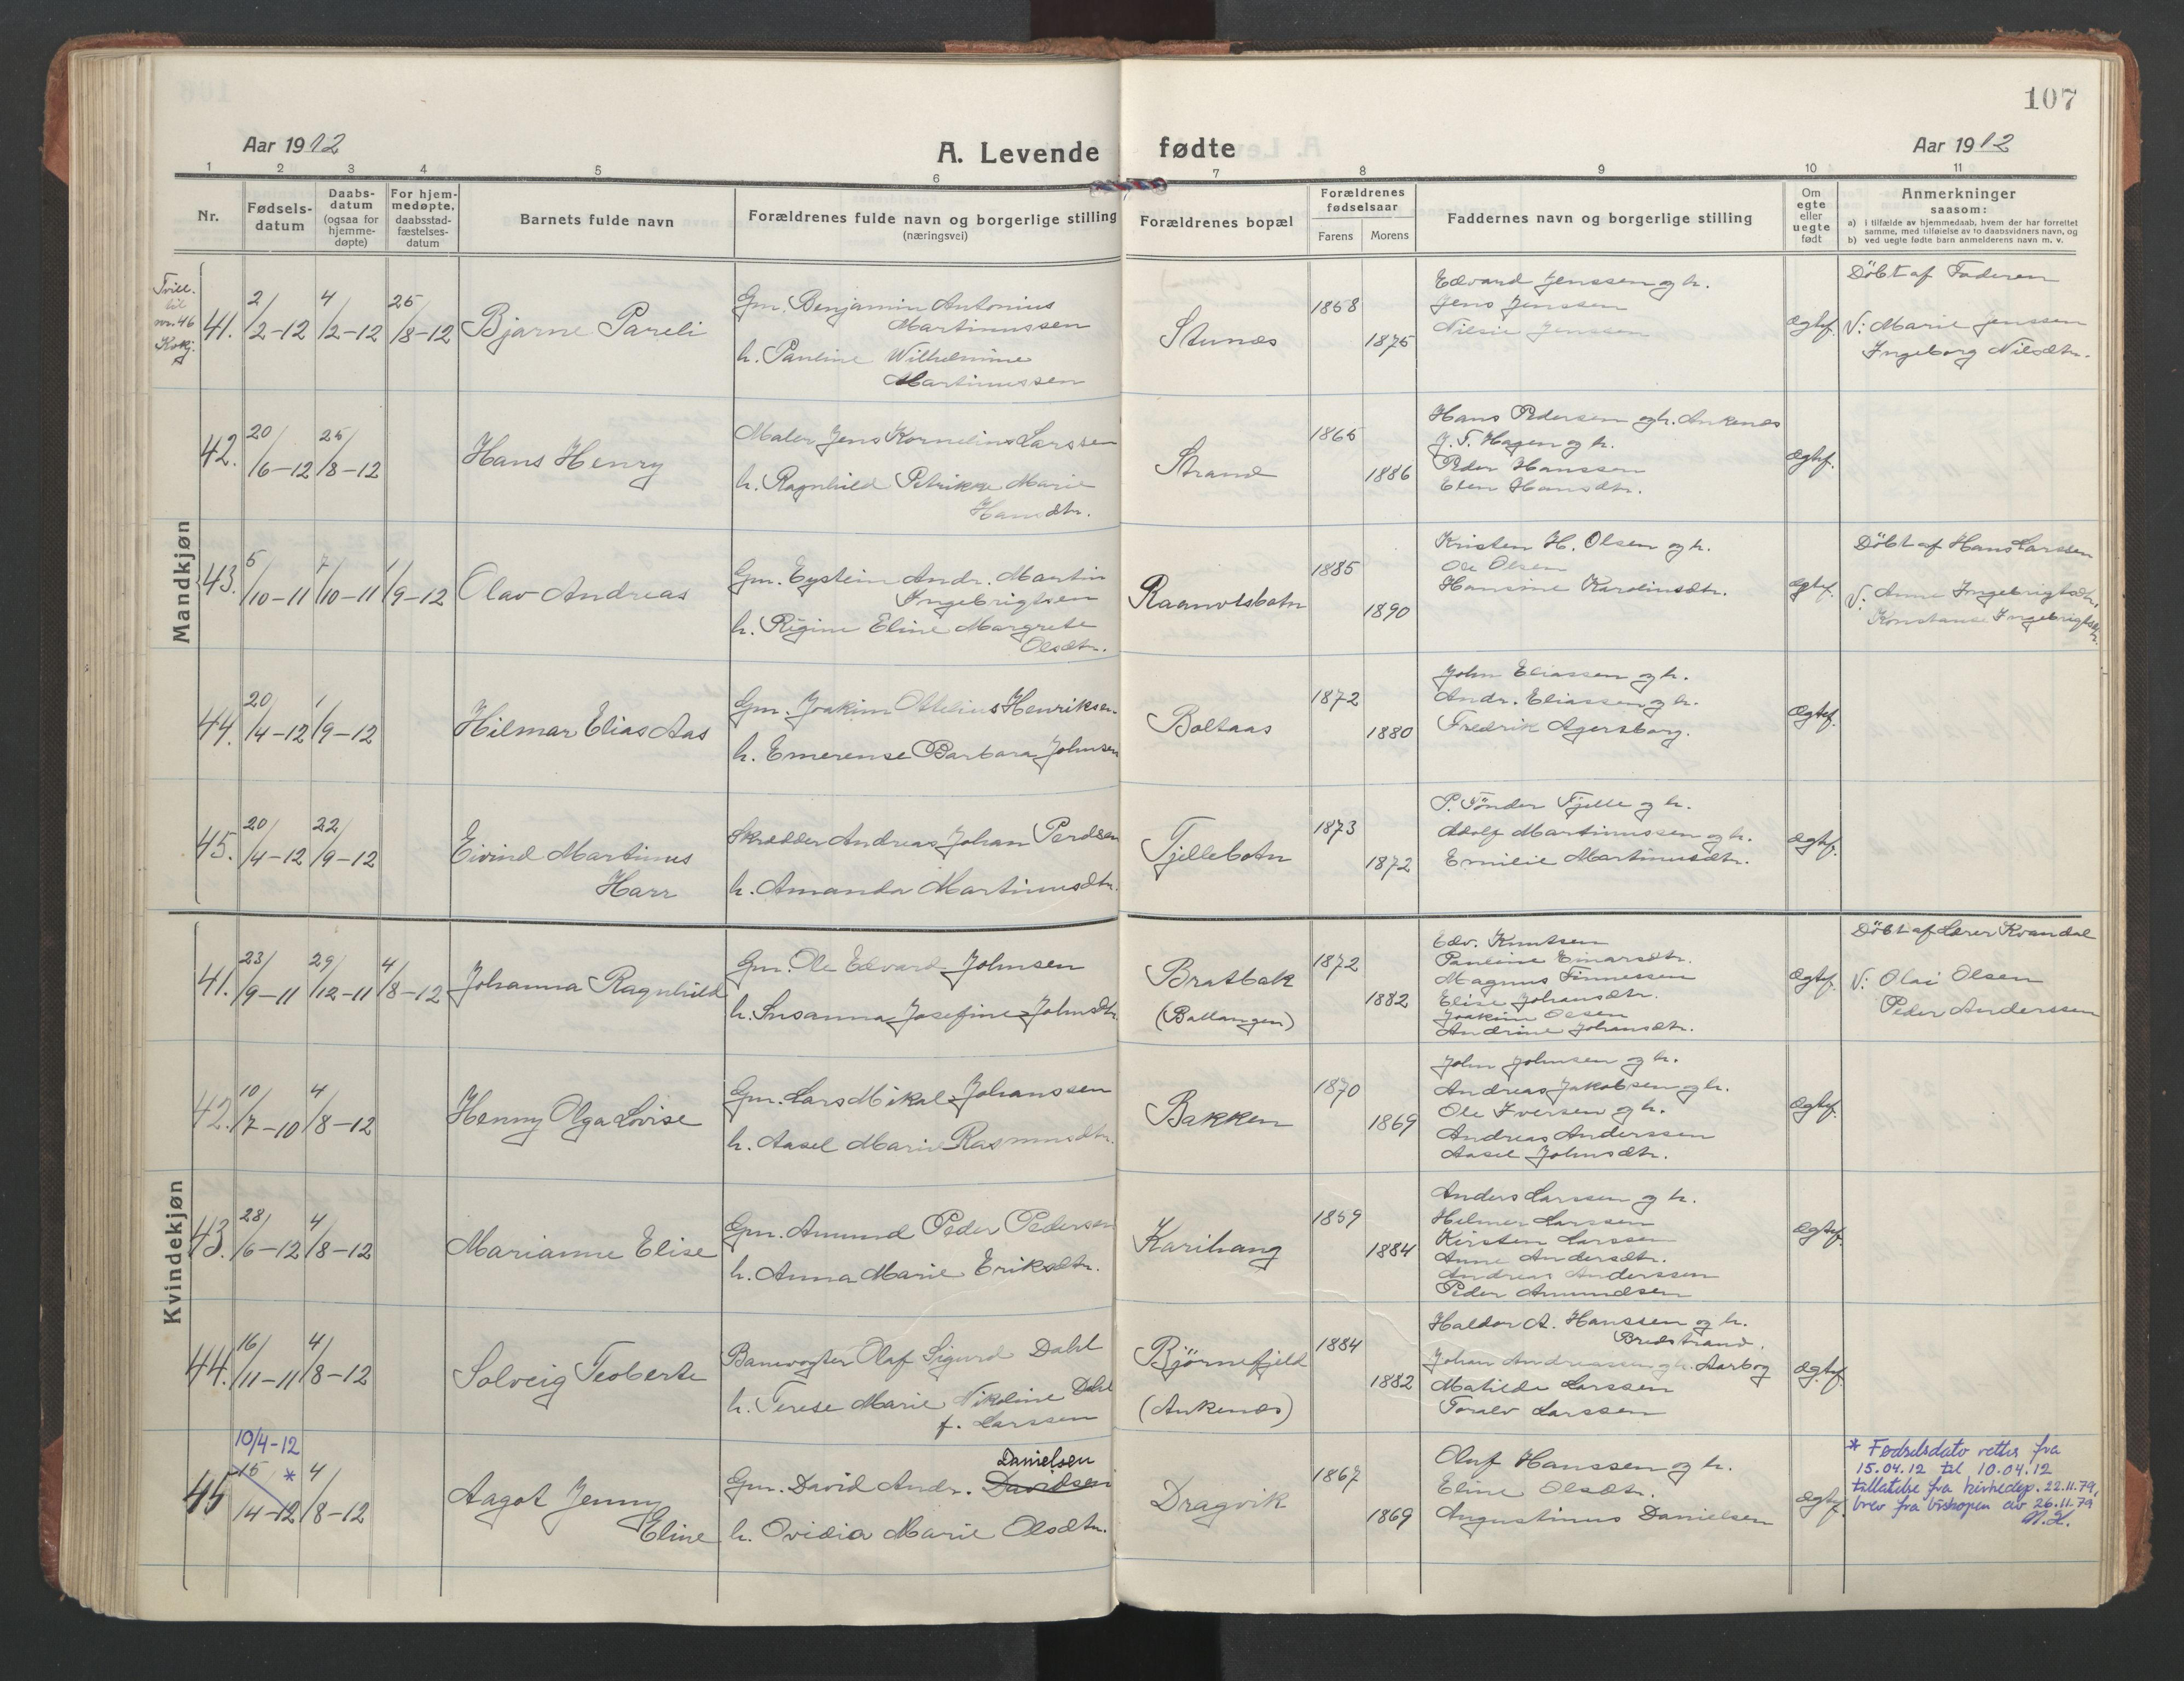 107
Aar 1912
A. Levende fødte
Aar 1912
1 2 3 4 5 6 7 8 9 10 11
Nr.
Fødsels-
datum
Daabs-
datum
(ogsaa for
hjemme-
døpte)
For hjem-
medøpte,
daabsstad-
fæstelses-
datum
Barnets fulde navn
Forældrenes fulde navn og borgerlige stilling
(næringsvei)
Forældrenes bopæl
Forældrenes
fødselsaar
Farens Morens
Faddernes navn og borgerlige stilling
Om
egte
eller
uegte
født
Anmerkninger
saasom:
a) i tilfælde av hjemmedaab, hvem der har forrettet
samme, med tilføielse av to daabsvidners navn, og
b) ved uegte fødte barn anmelderens navn m. v.
Mandkjøn
Tvill.
til
nr. 46
Kvkj.
41. 2/2-12 4/2-12 25/8-12 Bjarne Pareli
Gm. Benjamin Antonius
Martinussen
h. Pauline Wilhelmine
Martinussen
Stunes
1858
1875
Edvard Jenssen og h.
Jens Jenssen
Nilsie Jenssen
Ægtef.
Döbt af Faderen
V: Marie Jenssen
Ingeborg Nilsdtr.
42. 20/6-12 25/8-12 Hans Henry
Maler Jens Kornelius Larssen
h. Ragnhild Petrikke Marie
Hansdtr.
Strand
1865
1886
Hans Pedersen og h. Ankenes
J. T. Hagen og h.
Peder Hanssen
Elen Hansdtr.
Ægtef.
43. 5/10-11 7/10-11 1/9-12 Olav Andreas
Gm. Eystein Andr. Martin
Ingebrigtsen
h. Regine Eline Margrete
Olsdtr.
Raanvolsbotn
1885
1890
Kristen H. Olsen og h.
Ole Olsen
Hansine Karolinsdtr.
Ægtef.
Döbt af Hans Larssen
V: Anne Ingebrigtsdtr.
Konstanse Ingebrigtsdtr.
44. 20/4-12 1/9-12 Hilmar Elias Aas
Gm. Joakim Ottelius Henriksen
h. Emerense Barbara Johnsen
Boltaas
1872
1880
John Eliassen og h.
Andr. Eliassen og h.
Fredrik Agersborg.
Ægtef.
45. 20/4-12 22/9-12 Eivind Martinus
Harr
Skrædder Andreas Johan Perdsen
h. Amanda Martinusdtr.
Fjellebotn
1873
1872
P. Tönder Fjelle og h.
Adolf Martinussen og h.
Emilie Martinusdtr.
Ægtef.
Kvindekjøn
41. 23/9-11 29/12-11 4/8-12 Johanna Ragnhild
Gm. Ole Edvard Johnsen
h. Susanna Josefine Johnsdtr.
Bratbak
(Ballangen)
1872
1882
Edv. Knutsen
Pauline Einarsdtr.
Magnus Finnessen
Elise Johansdtr.
Joakim Olsen
Andrine Johansdtr.
Ægtef.
Döbt af Lærer Kvandal
V: Olai Olsen
Peder Anderssen
42. 10/7-10 4/8-12 Henny Olga Lovise
Gm. Lars Mikal Johanssen
h. Aasel Marie Rasmusdtr.
Bakken
1870
1869
John Johnsen og h.
Andreas Jakobsen og h.
Ole Iversen og h.
Andreas Anderssen
Aasel Johnsdtr.
Ægtef.
43. 28/6-12 4/8-12 Marianne Elise
Gm. Amund Peder Pedersen
h. Anna Marie Eriksdtr.
Karihaug
1859
1884
Anders Larssen og h.
Hilmer Larssen
Kirsten Larssen
Anne Andersdtr.
Andreas Anderssen
Peder Amundsen
Ægtef.
44. 16/11-11 4/8-12 Solveig Teoberte
Banevogter Olaf Sigurd Dahl
h. Terese Marie Nikoline Dahl
f. Larssen
Björnefjeld
(Ankenes)
1884
1882
Haldor A. Hanssen og h.
Bredstrand.
Johan Andreassen og h. Aarbog
Matilde Larssen
Toralv Larssen
Ægtef.
10/4-12
45 15/4-12 * 4/8-12 Aagot Jenny
Eline
Danielsen
Gm. David Andr. Davidsen
h. Ovidia Marie Olsdtr.
Dragvik
1867
1869
Oluf Hanssen og h.
Eline Olsdtr.
Augustinus Danielsen
Ægtef.
* Fødselsdato rettes fra
15.04.12 til 10.04.12
tillatelse fra kirkedep. 22.11.79,
brev fra biskopen av 26.11.79
N.K.